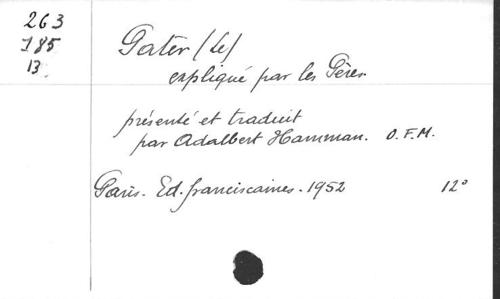 263
185
13.
Pater (Le)
expliqué par les Pères
présenté et traduit
par Adalbert Hamman. O.F.M.
Paris. Ed. franciscaines. 1952 12°